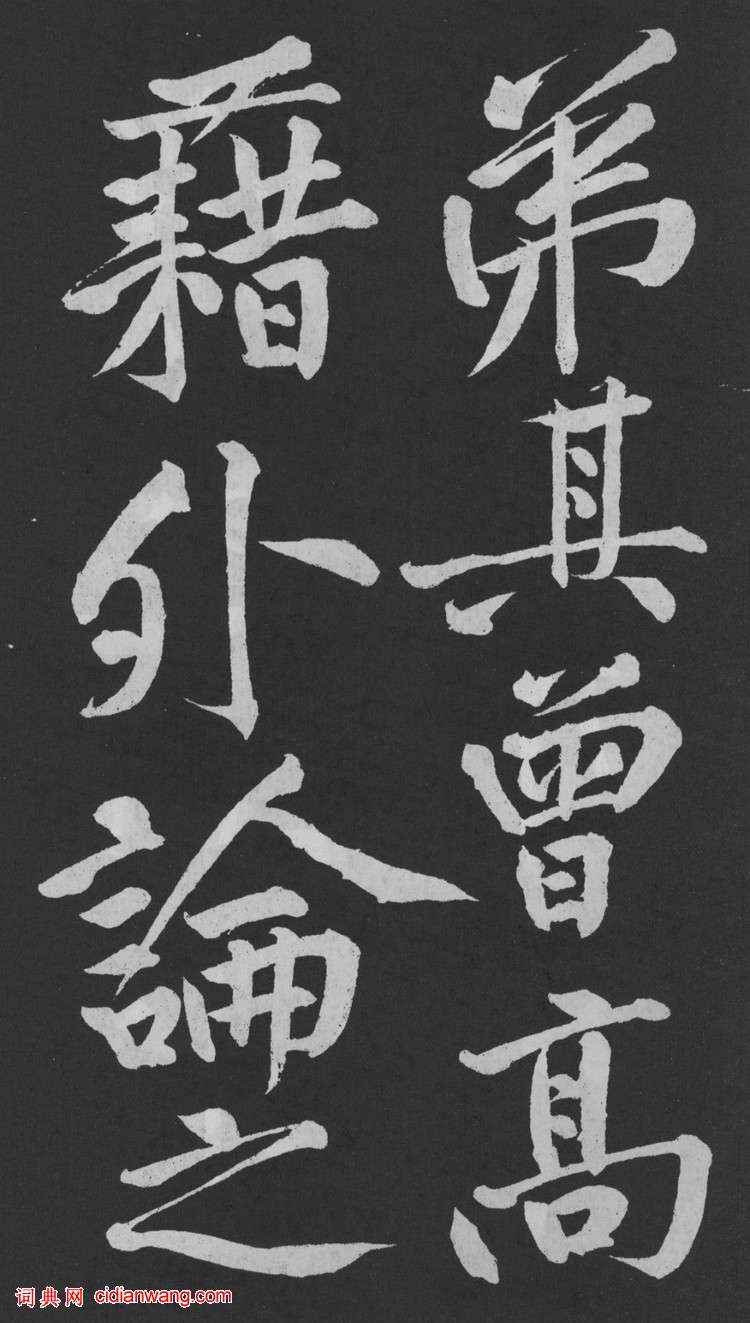 弟其曾高
藉外論之
词典网 cidianwang.com